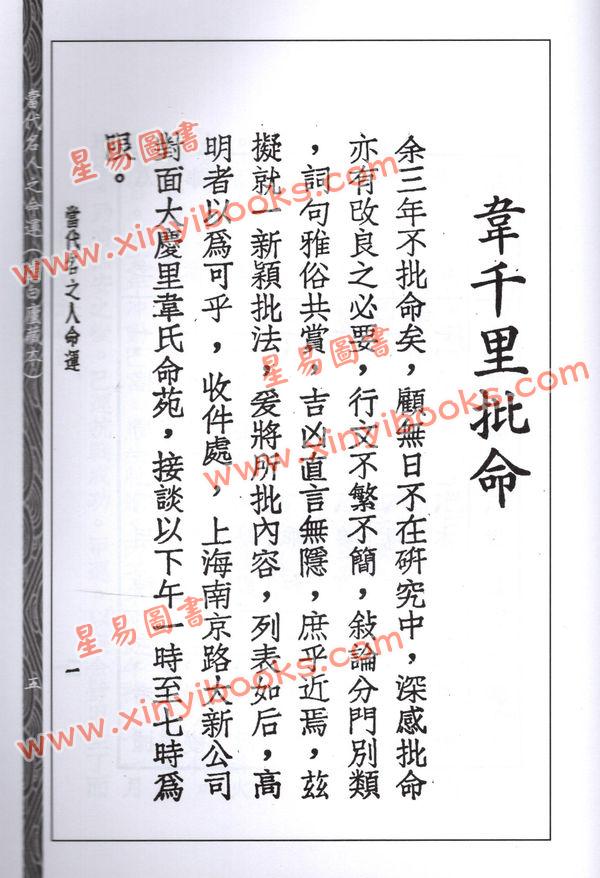 韋千里批命
余三年不批命矣，顧無日不在研究中，深感批命
亦有改良之必要，行文不繁不簡，敍論分門別類
，詞句雅俗共賞，吉凶直言無隱，庶乎近焉，茲
擬就一新穎批法，爰將所批內容，列表如后，高
明者以爲可乎，收件處，上海南京路大新公司
對面大慶里韋氏命苑，接談以下午一時至七時爲
限。
當代名之人命運
一
當代名人之命運（虛白廬藏本）
五
星易圖書
www.xinyibooks.com
星易圖書
www.xinyibooks.com
星易圖書
www.xinyibooks.com